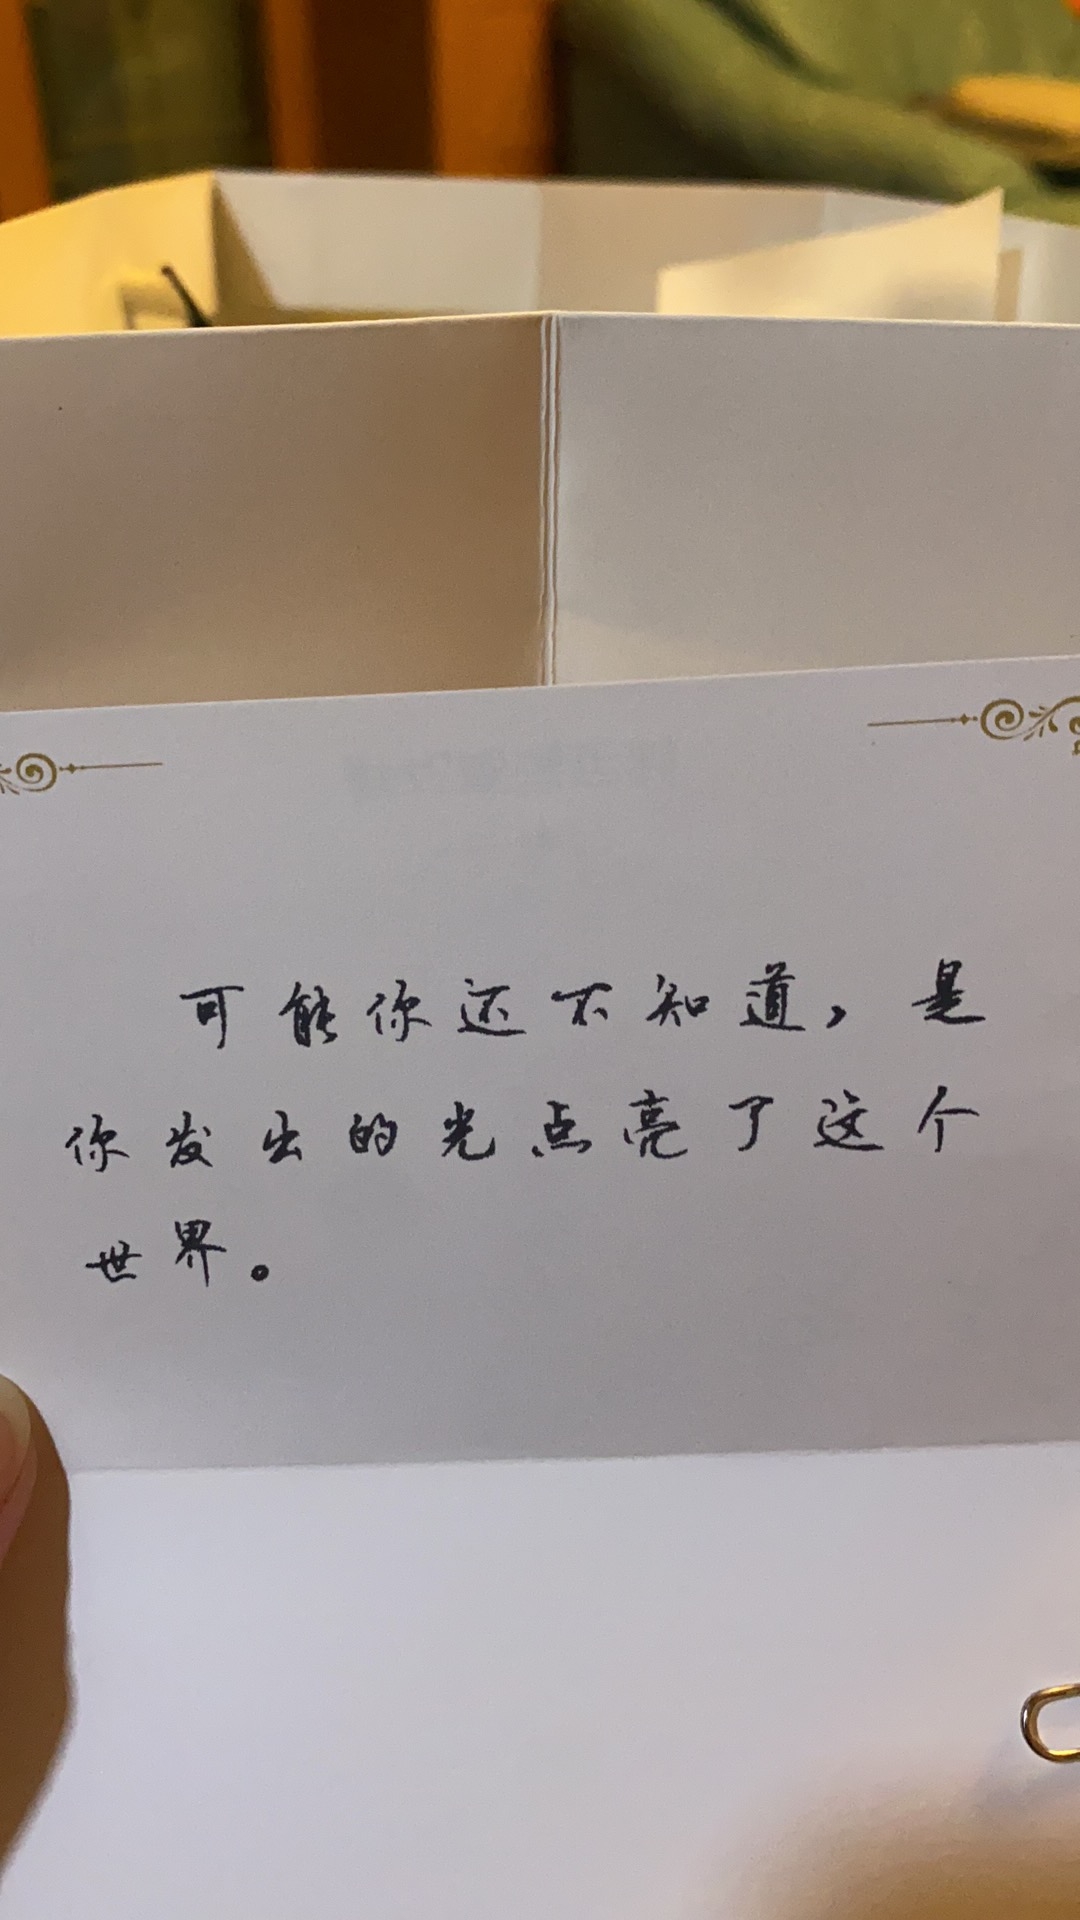 可能你还不知道，是
你发出的光点亮了这个
世界。